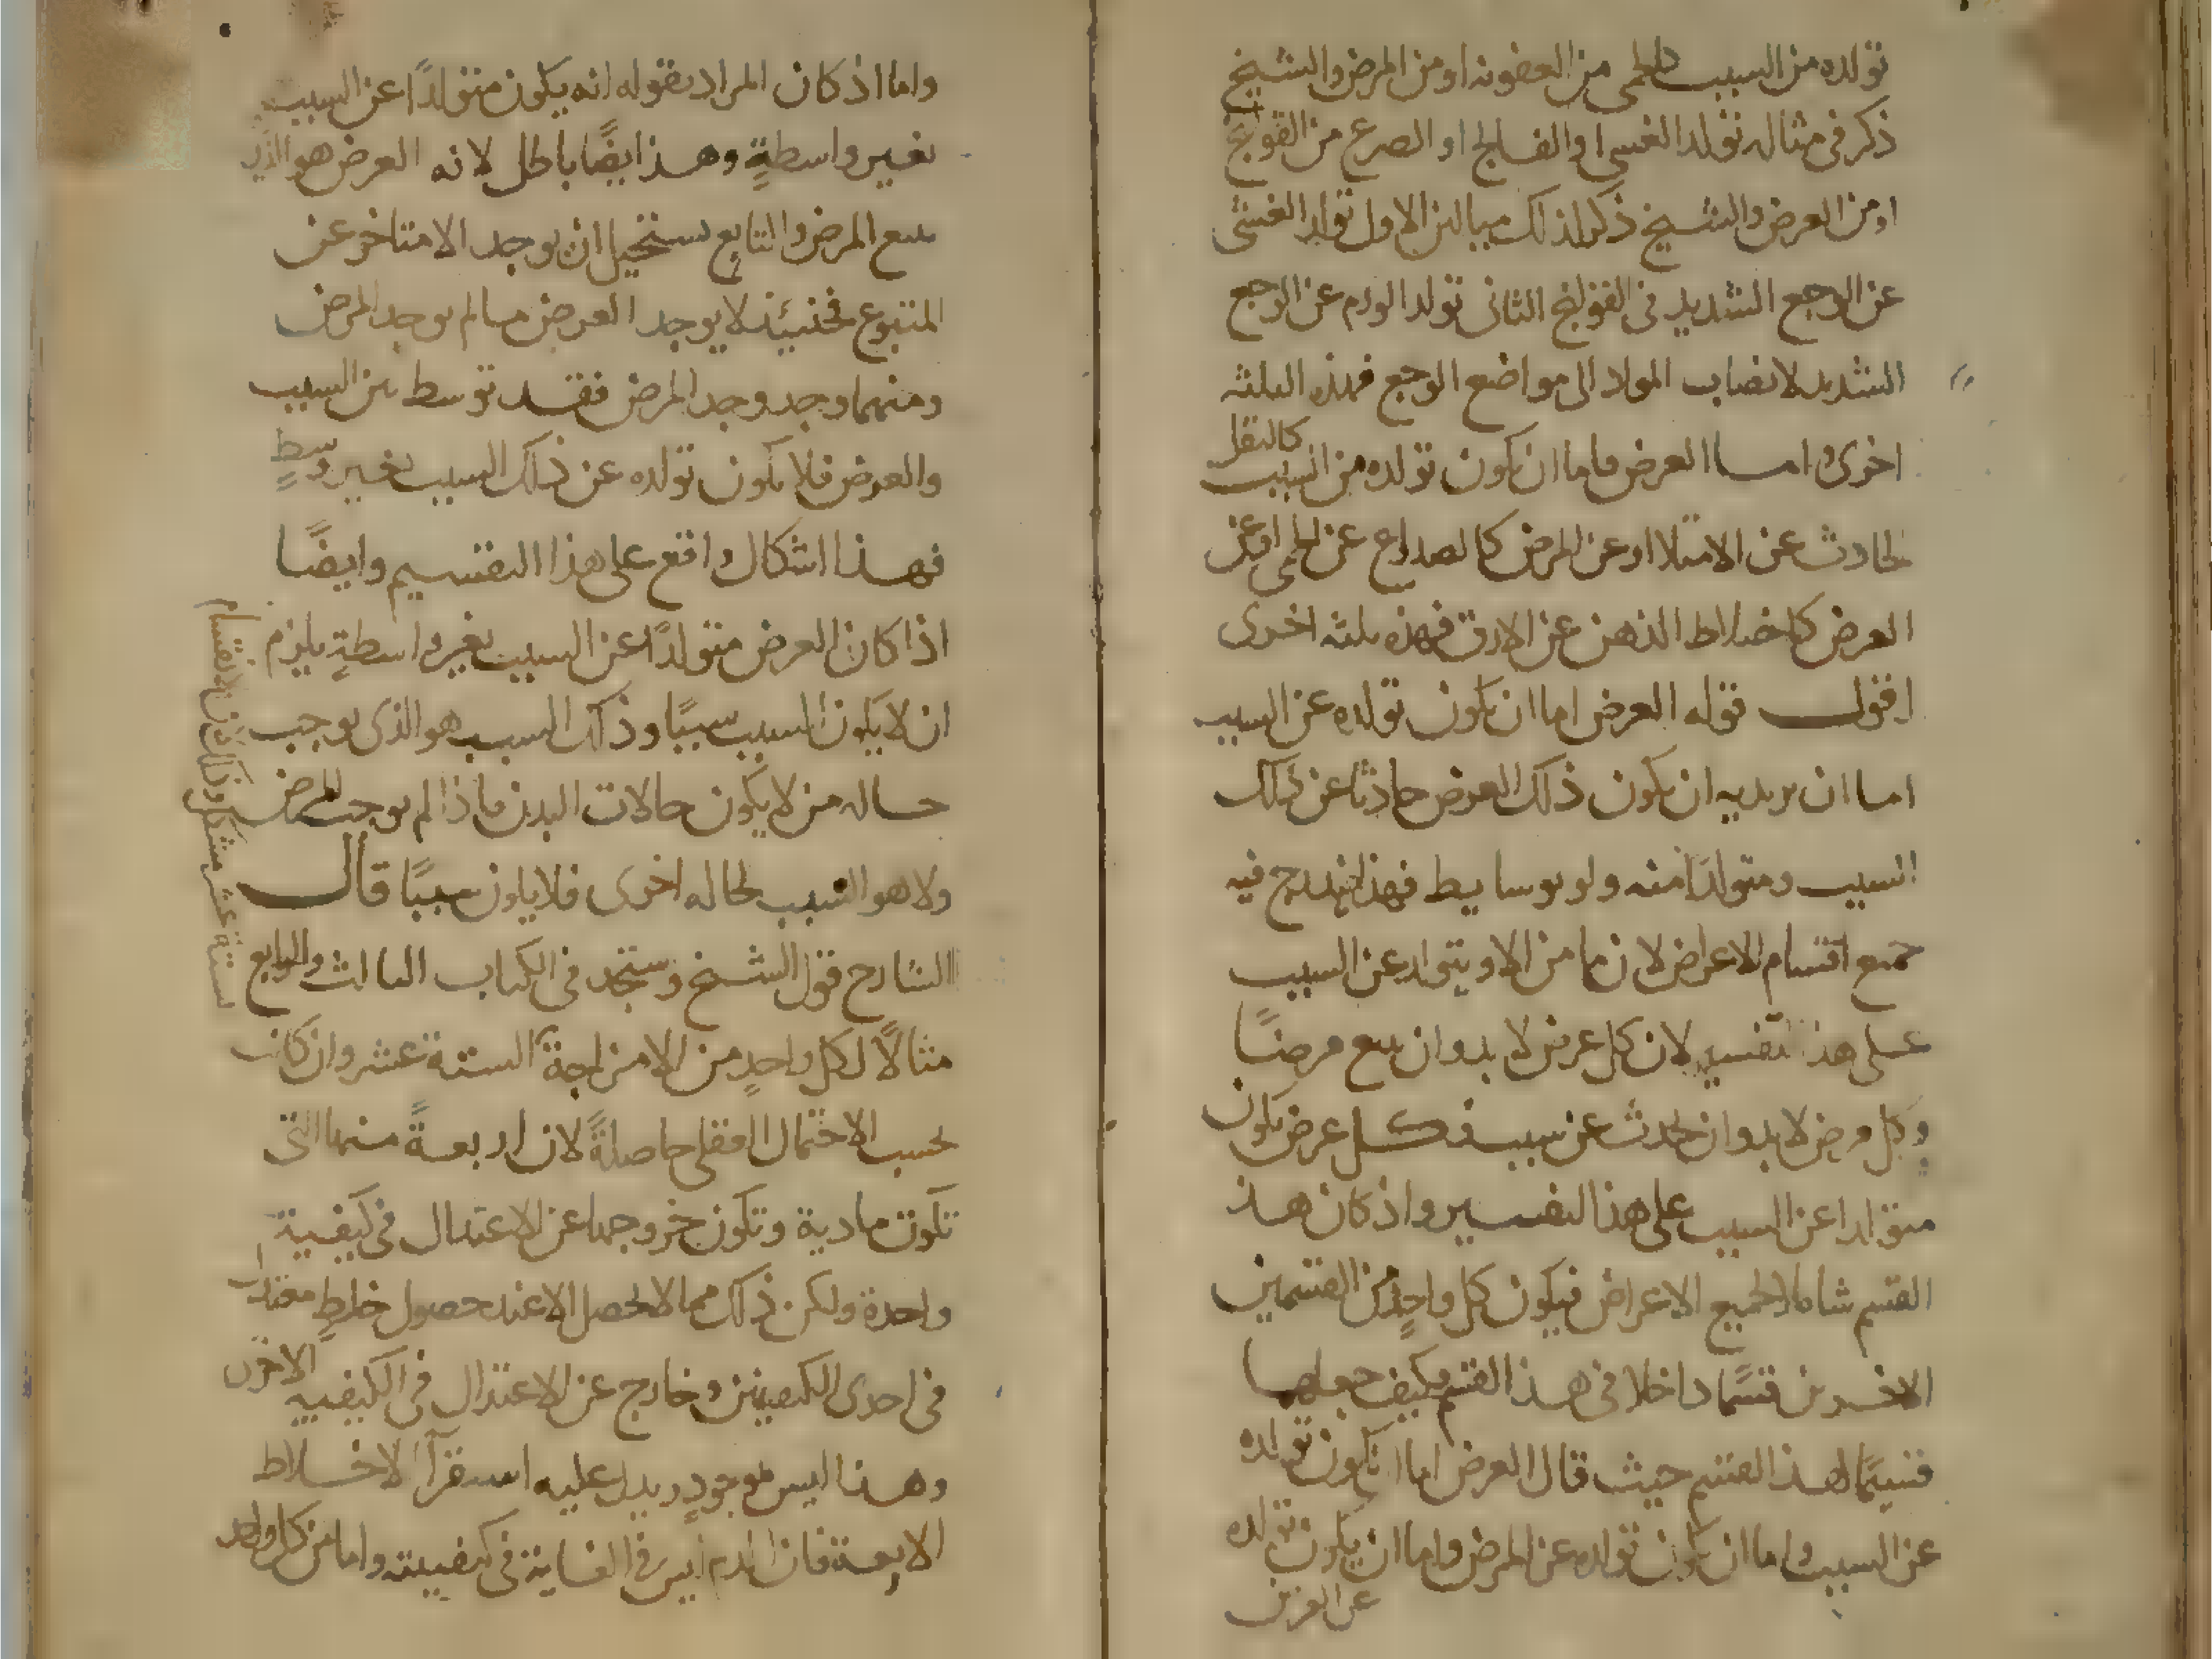 تولده من السبب كالحمى من العفونه او من المرض والشيخ
ذكر فى مثاله تولد الغشى او الفالج او الصرع من القولنج
او من العرض والشيخ ذكر لذلك مثالين الاول تولد الغشى
عن الوجع الشديد فى القولنج الثانى تولد الورم عن الوجع
الشديد لانصاب المواد الى مواضع الوجع فهذه الثلثه
اخرى واما العرض فاما ان يكون تولده من السبب كالثقل
الحادث عن الامتلا او عن المرض كالصداع عن الحمى او عن
العرض كاختلاط الذهن عن الارق فهذه ثلثه اخرى
اقول قوله العرض اما ان يكون تولده عن السبب
اما ان يريد به ان يكون ذلك العرض حادثا عن ذلك
السبب ومتولدا منه ولو بوسايط فهذا يندرج فيه
جميع اقسام الاعراض لان ما من الا ويتولد عن السبب
على هذا التفسير لان كل عرض لا بد وان يتبع مرضًا
وكل مرض لا بد وان يحدث عن سبب فكل عرض يكون
متولدا عن السبب على هذا التفسير واذ كان هذ
القسم شاملا لجميع الاعراض فيكون كل واحدٍ من القسمين
الاخرين قسمًا داخلا فى هذا القسم فكيف جعلها
قسيمًا لهذ القسم حيث قال العرض اما ان يكون تولده
عن السبب واما ان يكون تولده عن المرض واما ان يكون تولده
عن العرض
واما اذ كان المراد بقوله انه يكون متولدًا عن السبب
بغير واسطةٍ وهذ ايضًا باطل لانه العرض هو الذى
يتبع المرض والتابع يستحيل ان يوجد الا متاخر عن
المتبوع فحنيئذ لا يوجد العرض ما لم يوجد المرض
ومتهما وجد وجد المرض فقد توسط بين السبب
والعرض فلا يكون تولده عن ذلك السبب بغير وسطٍ
فهذا اشكال واقع على هذا التقسيم وايضًا
اذا كان العرض متولدًا عن السبب بغير واسطةٍ يلزم
ان لا يكون السبب سببًا وذلك السبب هو الذى يوجب
حاله من لا يكون حالات البدن فاذا لم يوجب المرض
ولا هو السبب لحاله اخرى فلا يكون سببًا قال
الشارح قول الشيخ وستجد فى الكتاب الثالث والرابع
مثالًا لكل واحدٍ من الامزاجة الستة عشر وان كانت
بحسب الاحتمال العقلى حاصلةً لان اربعةً منها التى
تكون مادية وتكون خروجها عن الاعتدال فى كيفية
واحدة ولكن ذلك مما لا يحصل الا عند حصول خلطٍ معتدل
فى احدى الكيفيتين وخارج عن الاعتدال فى الكيفيه الاخرى
وهذا ليس موجودٍ ويدل عليه استقرآ الاخلاط
الاربعة فان الدم ليس فى الغاية فى كيفيته واما من كل واحد